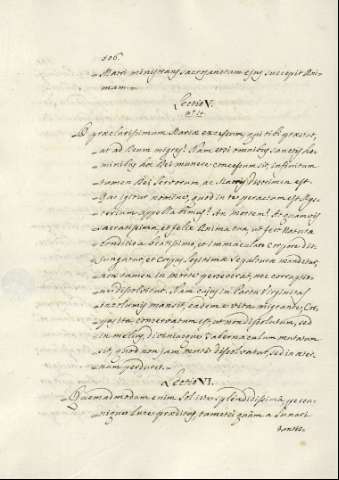 606.
Matri ministrans sacrosanctam ejus suscepit Ani-
mam.
Lectio V.
O præclarissimum Mariæ excessum, qui tibi præstat,
ut ad Deum migres! Nam etsi omnibus Sanctis ho-
minibus hoc Dei munere concessum sit, infinitum
tamen Dei Servorum ac Matris discrimen est.
Quo igitur nomine, quod in te peractum est My-
sterium appellabimus? An mortem? At quamvis
sacratissima, et felix Anima tua, ut fert Natura
conditio a beatissimo, et immaculato Corpore dis-
jungatur, et Corpus, legitimæ Sepulturæ mandetur,
non tamen in morte perseverat, nec corruptio-
ne dissolvitur. Nam cujus in Partu Virginitas
incolumis mansit, eadem e vita migrante, Cor-
pus ita conservatum est, ut non dissolutum, sed
in melius, diviniusque Tabernaculum mutatum
sit, quod non jam morti dissolvatur, sed in æter-
num perduret.
Lectio VI.
Quemadmodum enim Sol iste splendidissimus, peren-
nique luce præditus, tametsi quum a Lunari